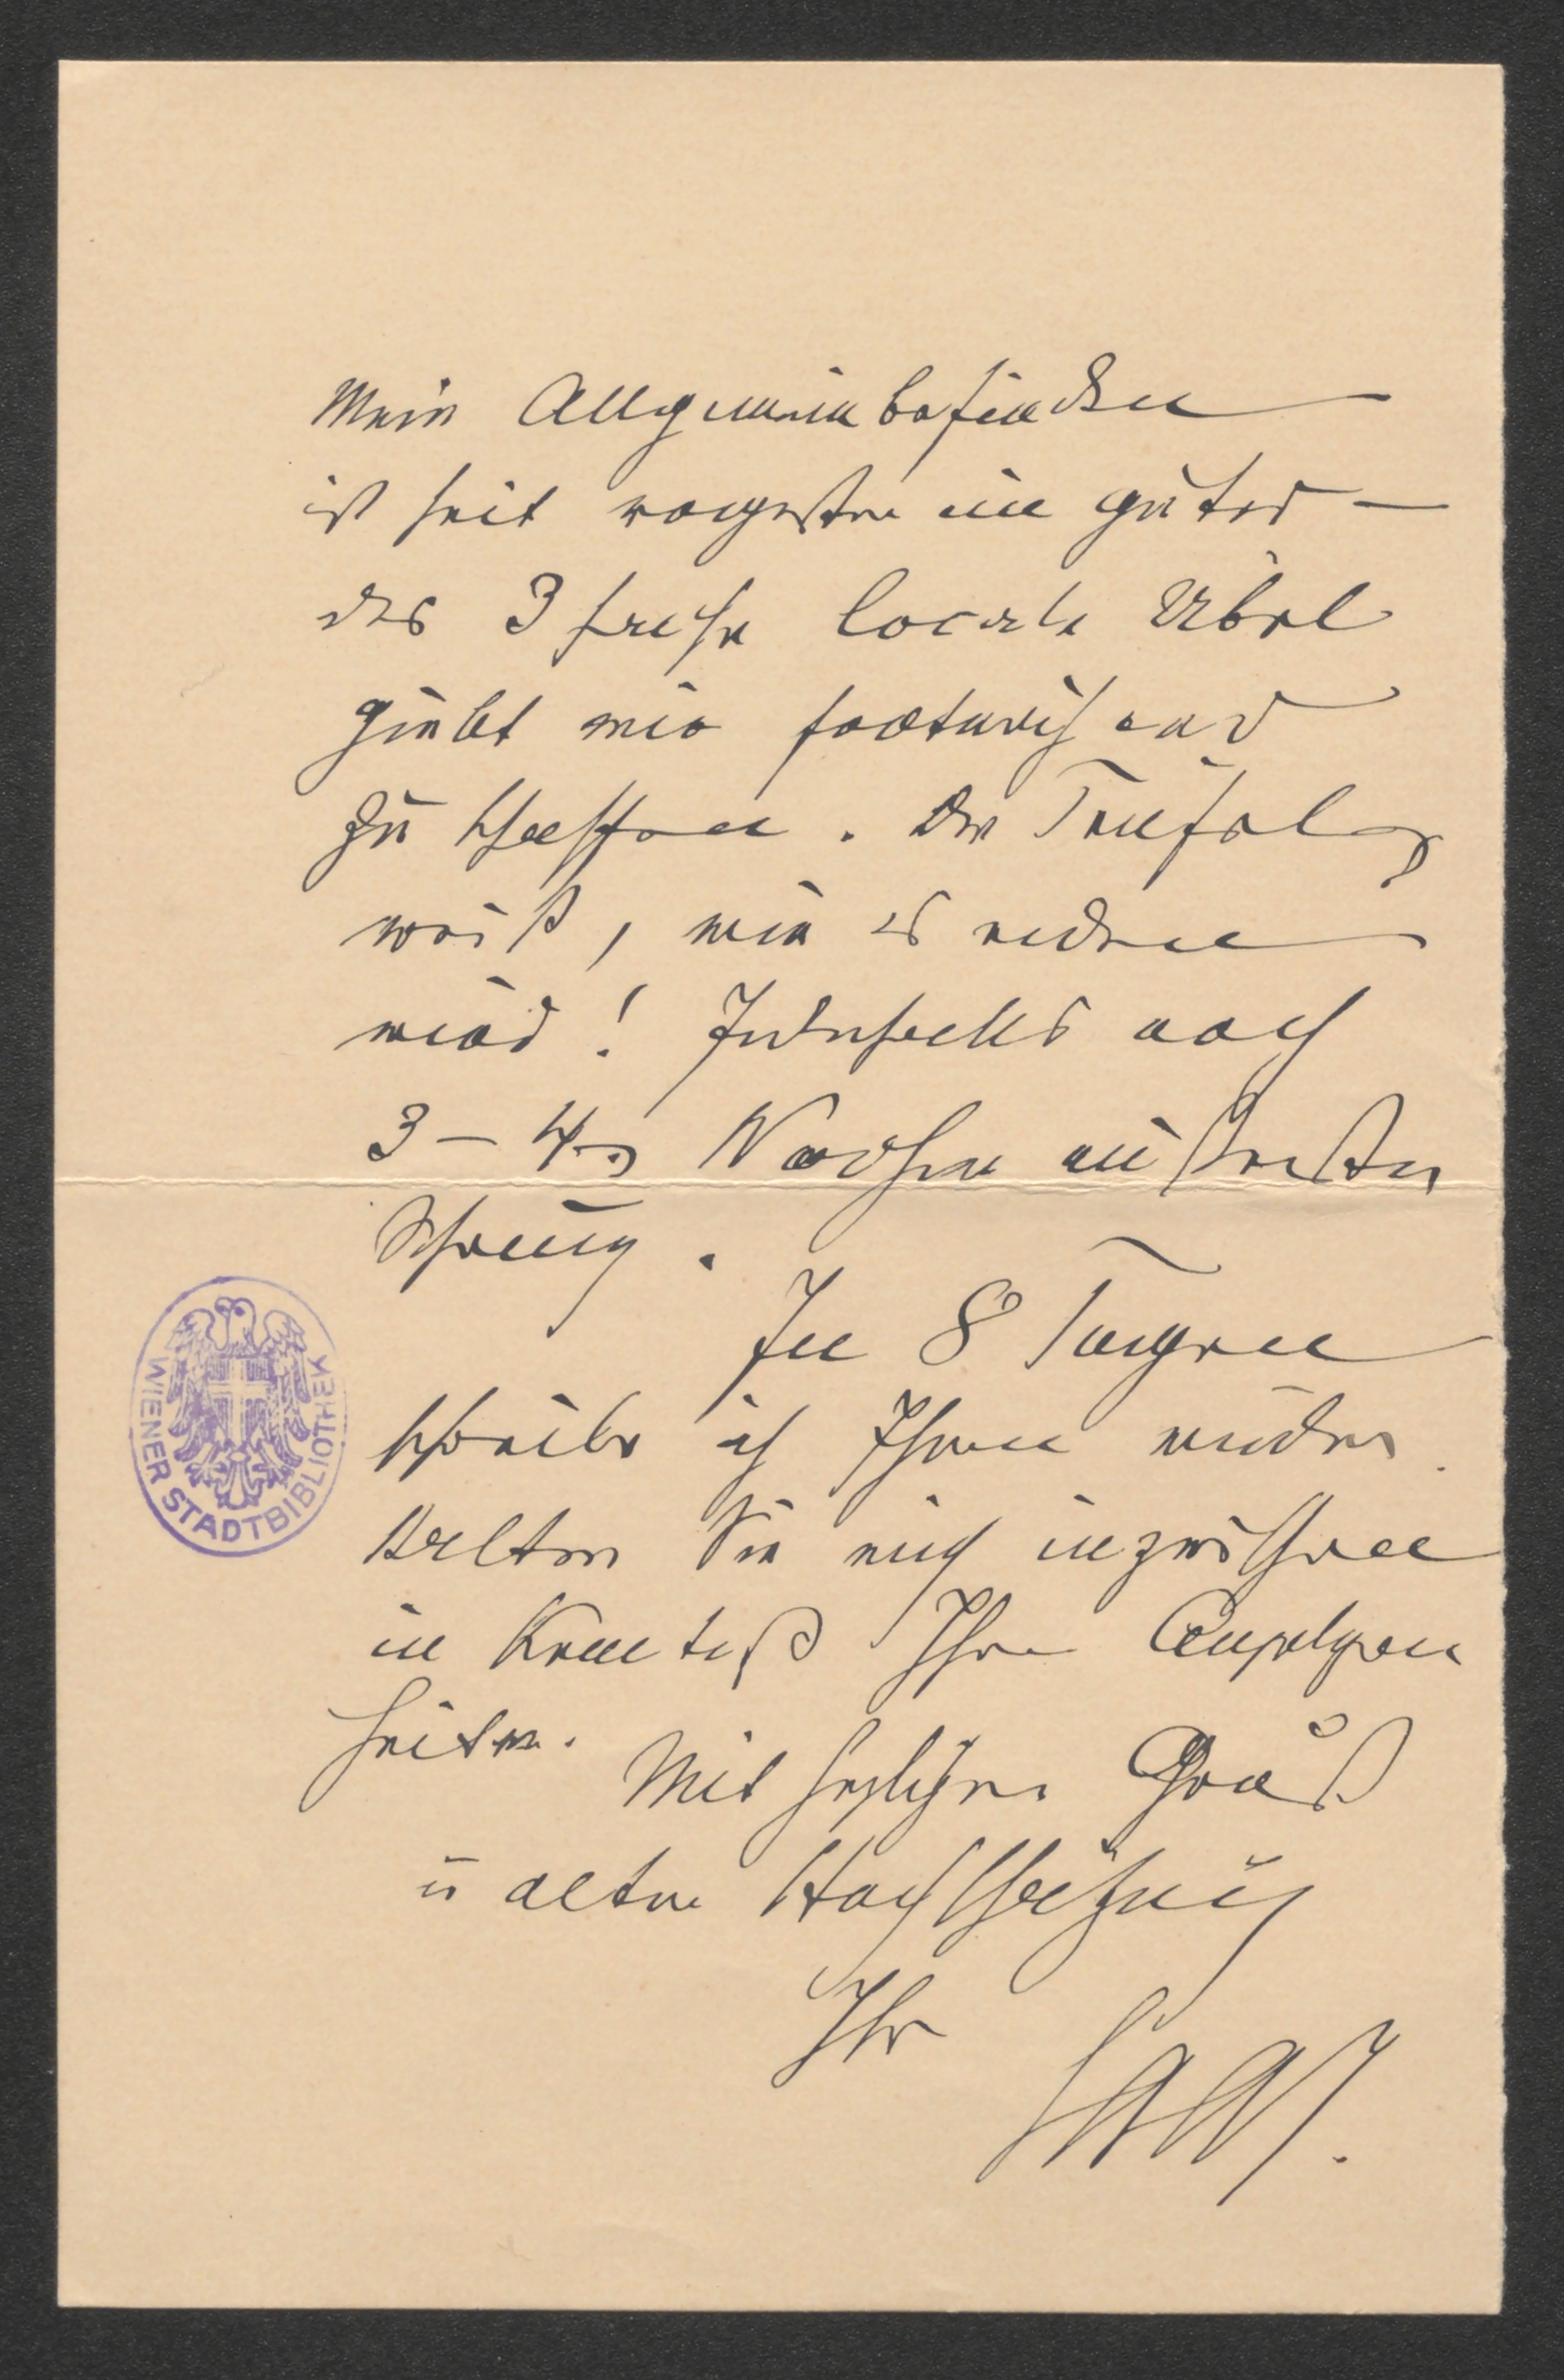 Mein Allgemeinbefinden
ist seit vorgestern ein gutes —
das 3fache locale Übel
giebt mir fortwährend
zu schaffen. Der Teufel
weiß, wie es enden
wird! Jedenfalls noch
3–4 Wochen
In 8 Tagen
schreibe ich Ihnen wieder.
Halten Sie mich inzwischen
in Kenntniß Ihrer Angelegen
heiten.
Mit herzlichem Gruß
u alter Hochschätzung
Ihr
WIENER STADTBIBLIOTHEK